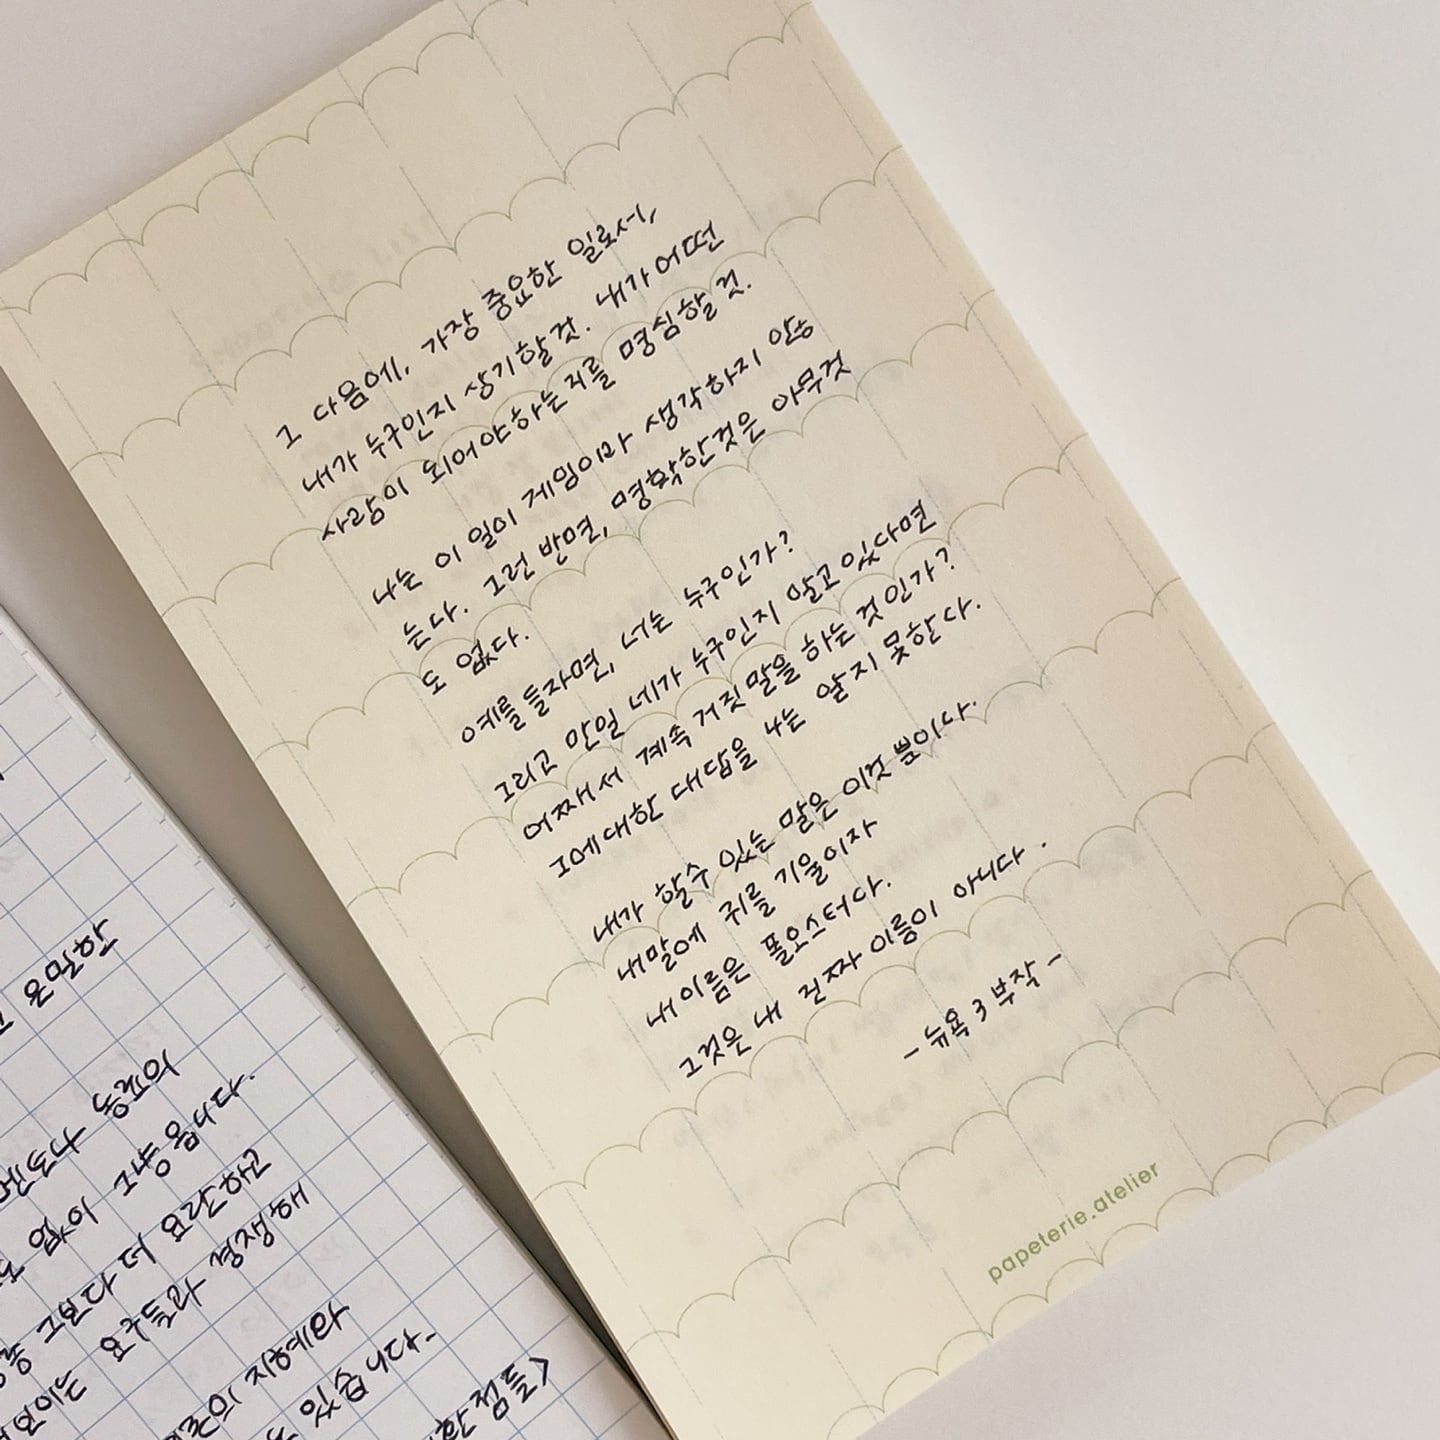 그 다음에, 가장 중요한 일로서,
내가 누구인지 상기할것. 내가 어떤
사람이 되어야하는지를 명심할 것.
나는 이 일이 게임이라 생각하지 않
는다. 그런 반면, 명확한것은 아무것
도 없다.
예를들자면, 너는 누구인가?
그리고 만일 네가 누구인지 알고있다면
어째서 계속 거짓말을 하는 것인가?
그에대한 대답을 나는 알지 못한다.
내가 할수 있는 말은 이것 뿐이다.
내말에 귀를 기울이자
내이름은 폴오스터다.
그것은 내 진짜 이름이 아니다.
- 뉴욕 3부작 -
papeterie.atelier
은밀함
동료의
없이 그냥 웁니다.
그보다 더 요란하고
요구들과 경쟁해
의 지혜와
있습니다-
한 점들>